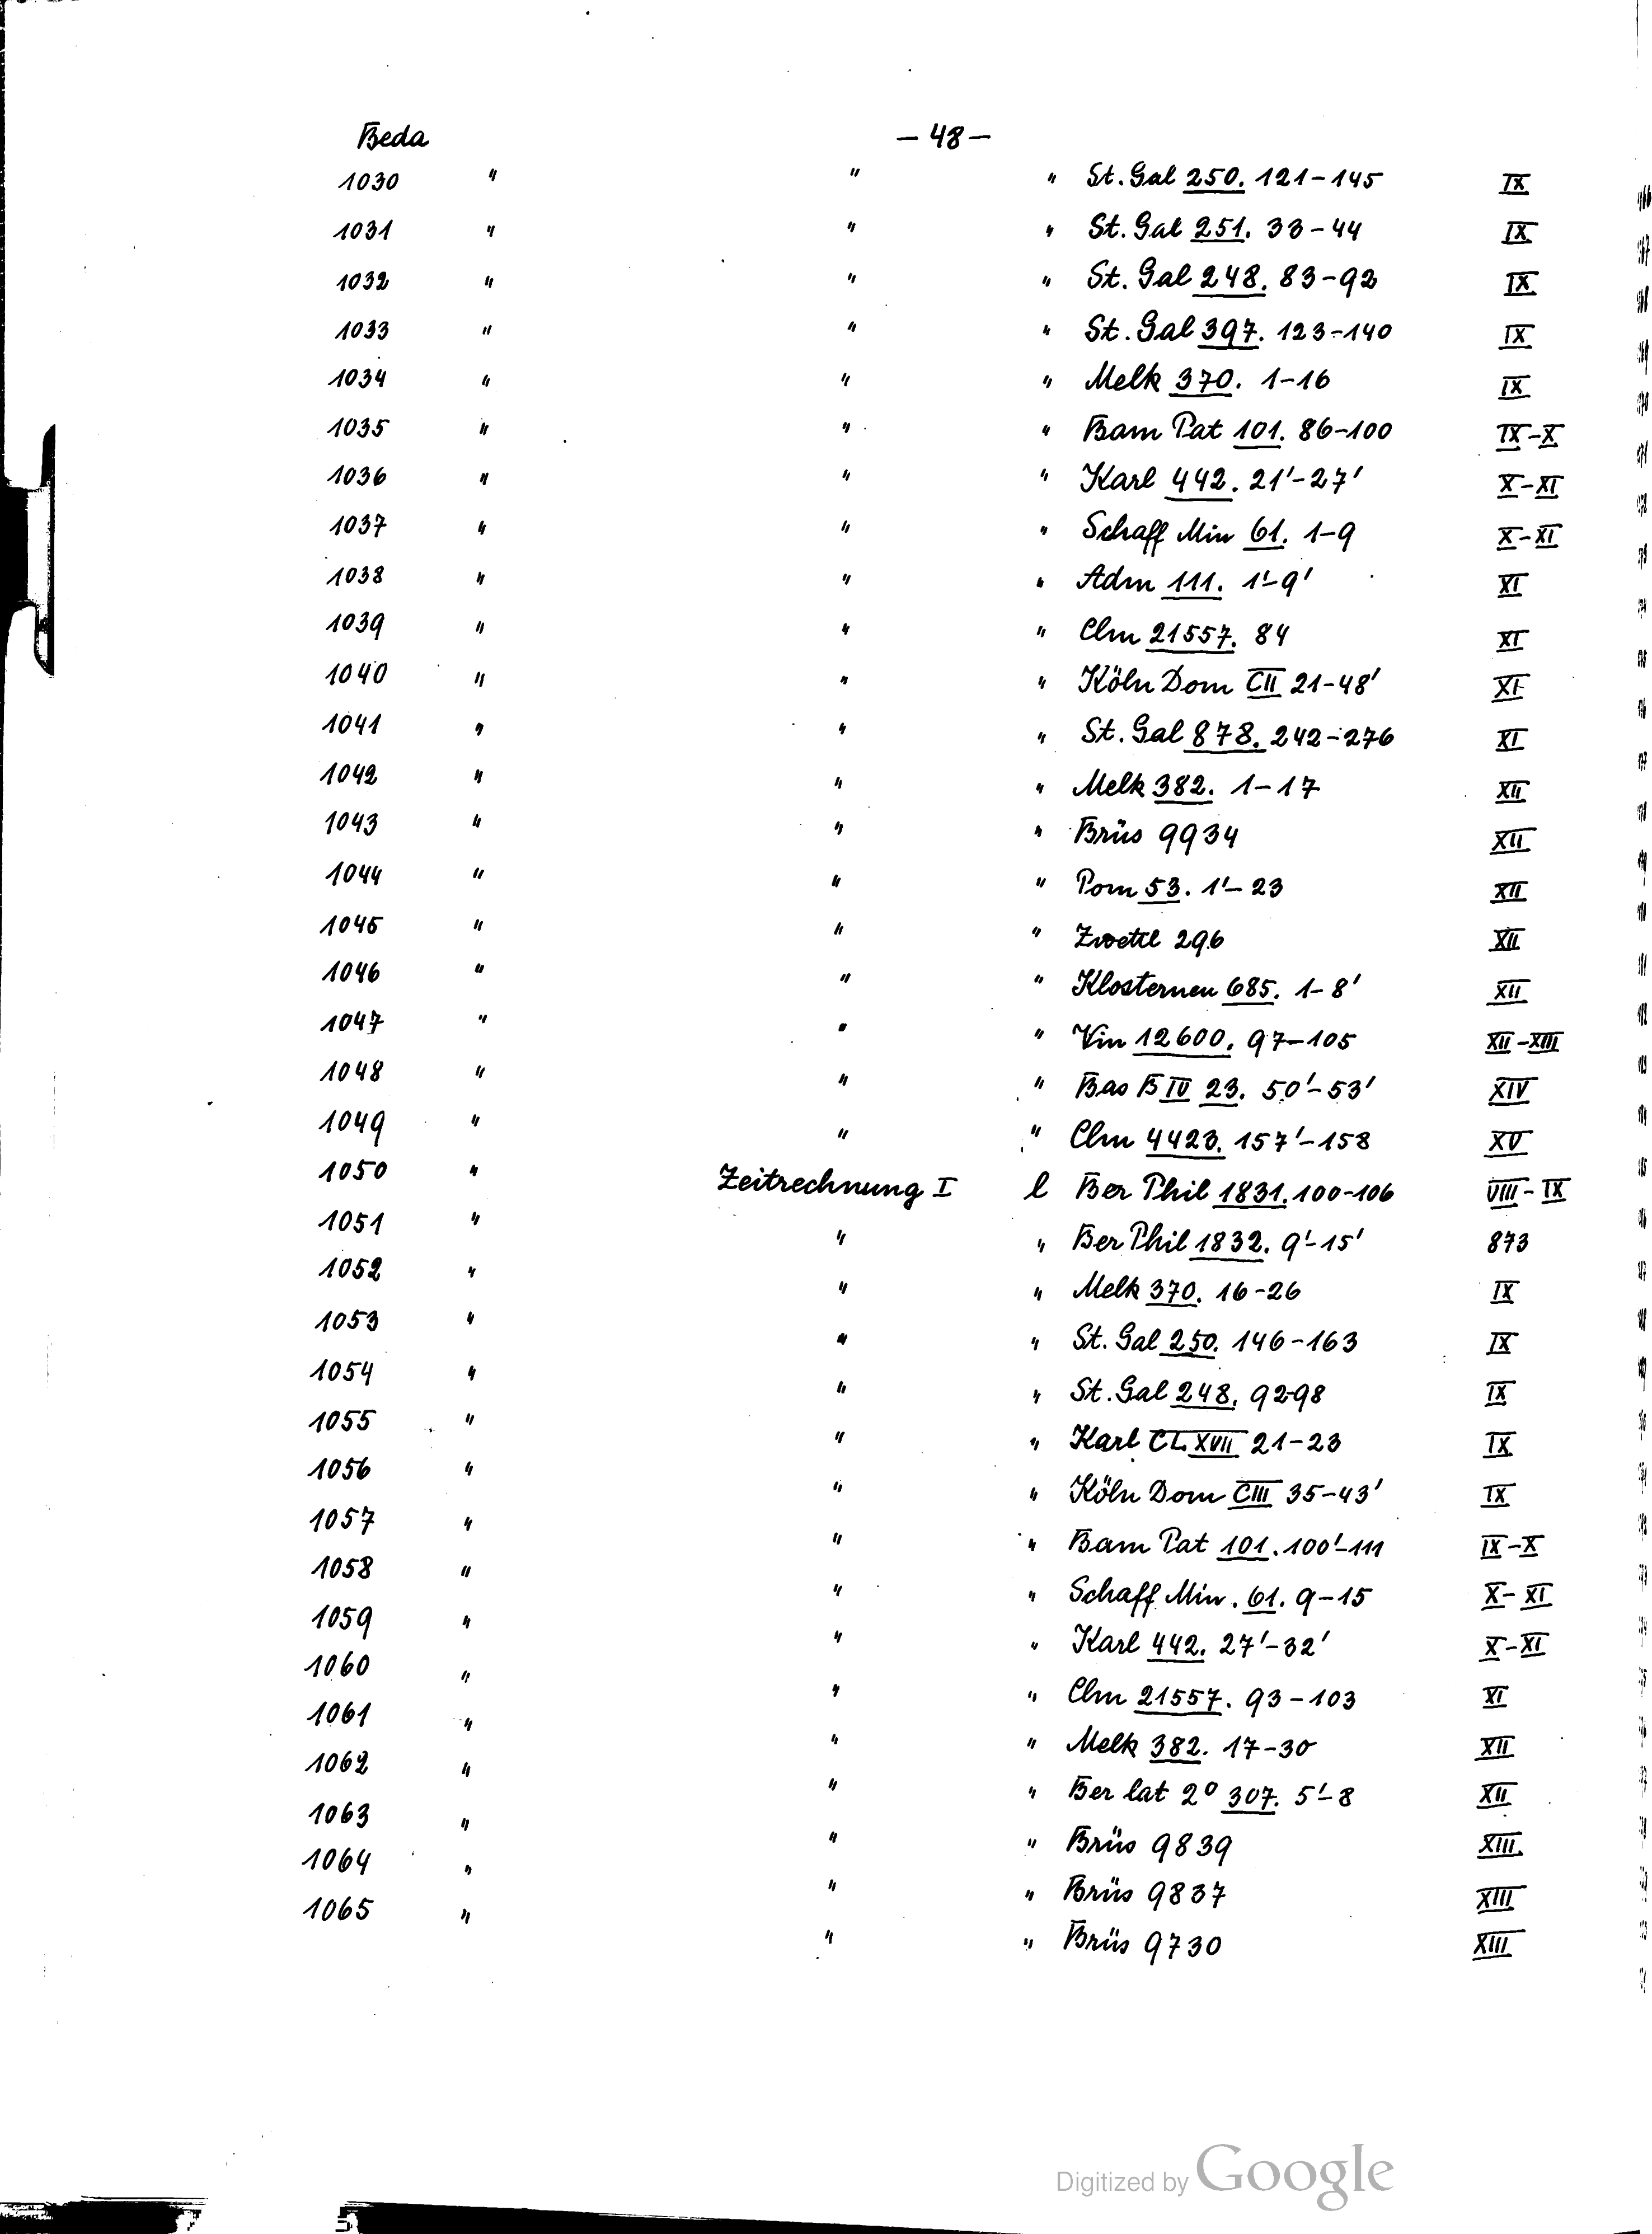 Beda — 48 —
1030 " " " St. Gal 250. 121–145 IX
1031 " " " St. Gal 251. 33–44 IX
1032 " " " St. Gal 248. 83–92 IX
1033 " " " St. Gal 397. 123–140 IX
1034 " " " Melk 370. 1–16 IX
1035 " " " Bam Pat 101. 86–100 IX–X
1036 " " " Karl 442. 21'–27' X–XI
1037 " " " Schaff Min 61. 1–9 X–XI
1038 " " " Adm 111. 1'–9' XI
1039 " " " Clm 21557. 84 XI
1040 " " " Köln Dom CII 21–48' XI
1041 " " " St. Gal 878. 242–276 XI
1042 " " " Melk 382. 1–17 XII
1043 " " " Brüs 9934 XII
1044 " " " Pom 53. 1'–23 XII
1045 " " " Zwettl 296 XII
1046 " " " Klosterneu 685. 1–8' XII
1047 " " " Vin 12600. 97–105 XII–XIII
1048 " " " Bas B IV 23. 50'–53' XIV
1049 " " " Clm 4423. 157'–158 XV
1050 " Zeitrechnung I l Ber Phil 1831. 100–106 VIII–IX
1051 " " " Ber Phil 1832. 9'–15' 873
1052 " " " Melk 370. 16–26 IX
1053 " " " St. Gal 250. 146–163 IX
1054 " " " St. Gal 248. 92–98 IX
1055 " " " Karl CLXVII 21–23 IX
1056 " " " Köln Dom CIII 35–43' IX
1057 " " " Bam Pat 101. 100'–111 IX–X
1058 " " " Schaff Min. 61. 9–15 X–XI
1059 " " " Karl 442. 27'–32' X–XI
1060 " " " Clm 21557. 93–103 XI
1061 " " " Melk 382. 17–30 XII
1062 " " " Ber lat 2º 307. 5'–8 XII
1063 " " " Brüs 9839 XIII
1064 " " " Brüs 9837 XIII
1065 " " " Brüs 9730 XIII
Digitized by Google